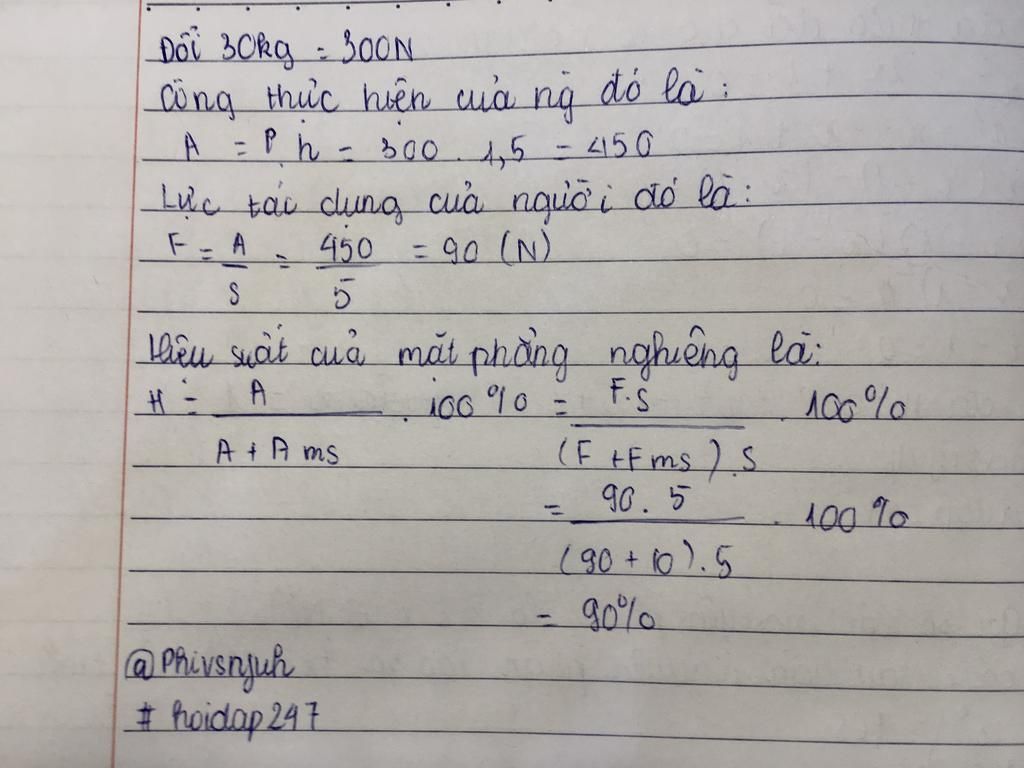 Đổi 30kg = 300N
Công thực hiện của ng đó là:
A = P.h = 300 . 1,5 = 450
Lực tác dụng của người đó là:
F = A/s = 450/5 = 90 (N)
Hiệu suất của mặt phẳng nghiêng là:
H = A/(A + A ms) . 100% = F.s/((F + Fms).S) . 100%
= 90.5/((90 + 10).5) . 100%
= 90%
@Phivsnjuh
# hoidap247